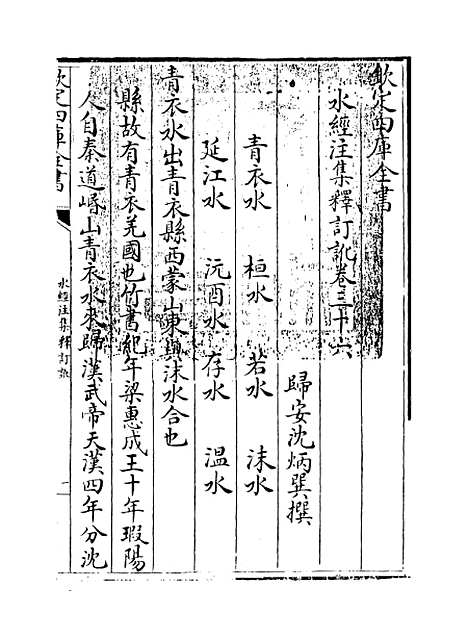 欽定四庫全書
水經注集釋訂訛卷三十六
歸安沈炳巽撰
青衣水 桓水 若水 沫水
延江水 沅酉水 存水 温水
青衣水出青衣縣西蒙山東與沫水合也
縣故有青衣羌國也竹書紀年梁惠成王十年瑕陽
人自秦道岷山青衣水來歸漢武帝天漢四年分沈
欽定四庫全書
水經注集釋訂訛